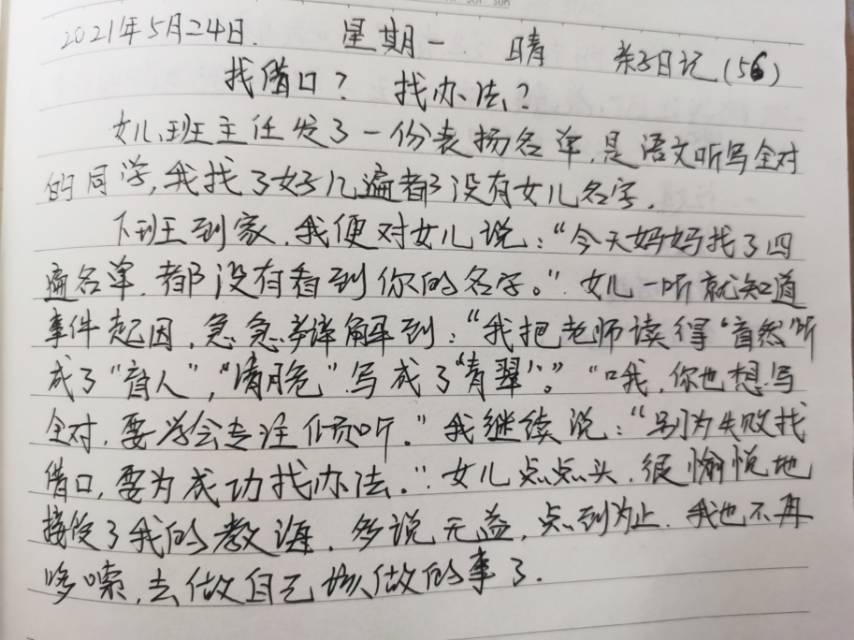 2021年5月24日. 星期一. 晴 亲子日记(56)
找借口? 找办法?
女儿班主任发了一份表扬名单,是语文听写全对
的同学,我找了好几遍都没有女儿名字.
下班到家,我便对女儿说:“今天妈妈找了四
遍名单,都没有看到你的名字。”女儿一听就知道
事件起因,急急解到:“我把老师读得‘音然’听
成了“音人”,“清脆”写成了“青翠”。”“哦,你也想写
全对,要学会专注倾听.”我继续说:“别为失败找
借口,要为成功找办法.”女儿点点头,很愉悦地
接受了我的教诲,多说无益,点到为止.我也不再
哆嗦,去做自己该做的事了.